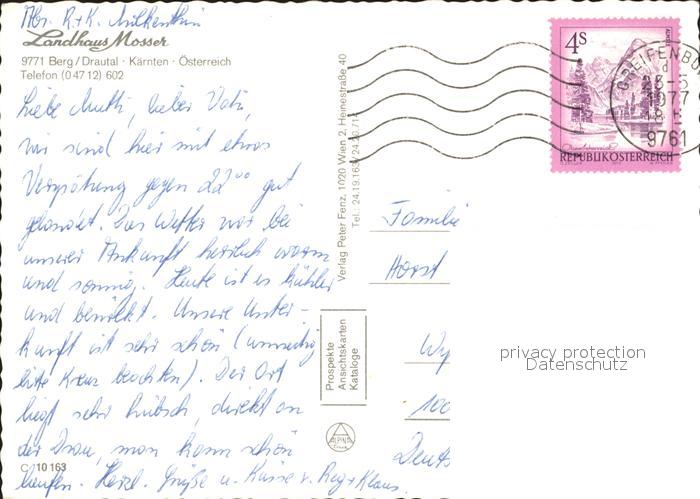 Abs. R.+K.
Landhaus Mosser
9771 Berg/Drautal · Kärnten · Österreich
Telefon (0 47 12) 602
Liebe Mutti, lieber Vati,
wir sind hier mit etwas
Verspätung gegen 22⁰⁰ gut
gelandet. Das Wetter war bei
unserer Ankunft herrlich warm
und sonnig. Heute ist es kühler
und bewölkt. Unsere Unter-
kunft ist sehr schön (umseitig
bitte Kreuz beachten). Der Ort
liegt sehr hübsch, direkt an
der Drau, man kann schön
laufen. Herzl. Grüße u. Küsse v. Reg + Klaus.
C 10 163
Verlag Peter Fenz, 1020 Wien 2, Heinestraße 40
Prospekte
Ansichtskarten
Kataloge
ALPINA
4 S
REPUBLIK ÖSTERREICH
GREIFENBU
1977
9761
Familie
Horst
Wy
100
Deuts
privacy protection
Datenschutz